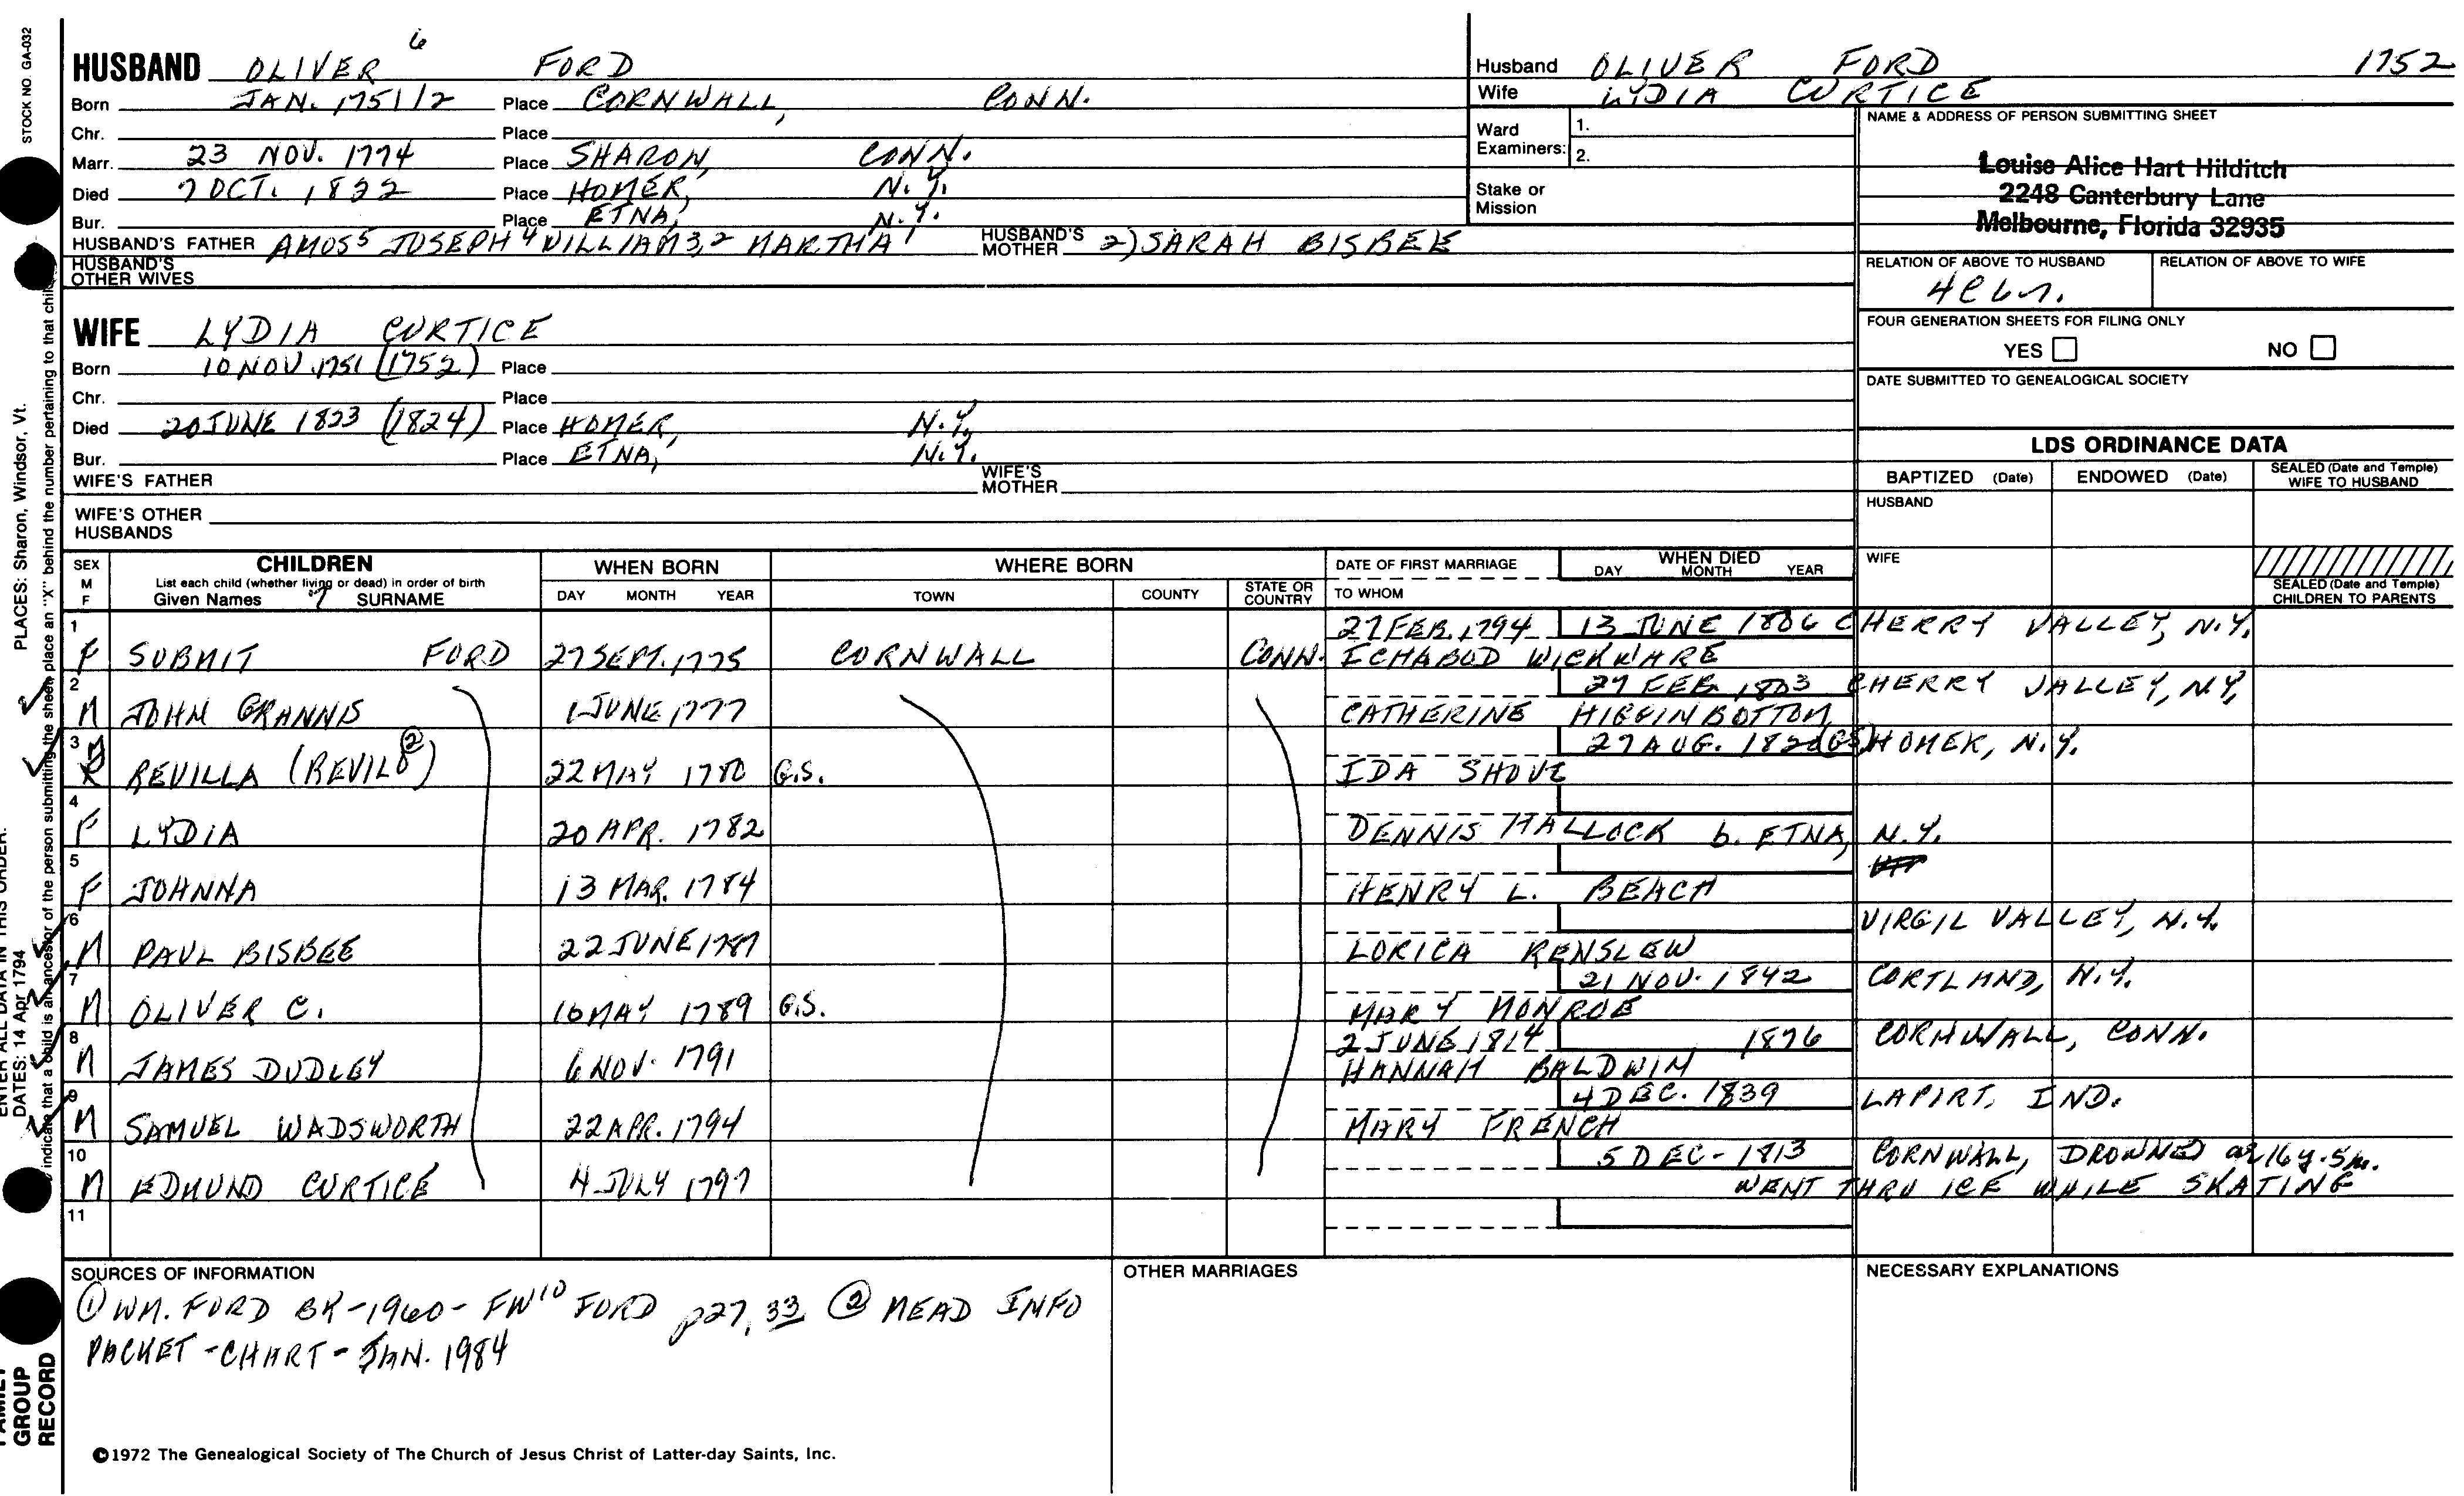 STOCK NO. GA-032
PLACES: Sharon, Windsor, Vt.
ENTER ALL DATA IN THIS ORDER:
DATES: 14 Apr 1794
indicate that a child is an ancestor of the person submitting the sheet, place an "X" behind the number pertaining to that child.
FAMILY GROUP RECORD
HUSBAND OLIVER 6 FORD
Born JAN. 1751/2 Place CORNWALL, CONN.
Chr. Place
Marr. 23 NOV. 1774 Place SHARON, CONN.
Died 7 OCT. 1822 Place HOMER, N.Y.
Bur. Place ETNA, N.Y.
HUSBAND'S FATHER AMOS 5 JOSEPH 4 WILLIAM 3,2 MARTHA 1 HUSBAND'S MOTHER 2) SARAH BISBEE
HUSBAND'S OTHER WIVES
WIFE LYDIA CURTICE
Born 10 NOV. 1751 (1752) Place
Chr. Place
Died 20 JUNE 1823 (1824) Place HOMER, N.Y.
Bur. Place ETNA, N.Y.
WIFE'S FATHER WIFE'S MOTHER
WIFE'S OTHER HUSBANDS
Husband OLIVER FORD 1752
Wife LYDIA CURTICE
Ward Examiners: 1.
2.
Stake or Mission
NAME & ADDRESS OF PERSON SUBMITTING SHEET
Louise Alice Hart Hilditch
2248 Canterbury Lane
Melbourne, Florida 32935
RELATION OF ABOVE TO HUSBAND RELATION OF ABOVE TO WIFE
FOUR GENERATION SHEETS FOR FILING ONLY
YES NO
DATE SUBMITTED TO GENEALOGICAL SOCIETY
LDS ORDINANCE DATA
BAPTIZED (Date) ENDOWED (Date) SEALED (Date and Temple) WIFE TO HUSBAND
HUSBAND
WIFE
SEALED (Date and Temple) CHILDREN TO PARENTS
SEX M F CHILDREN WHEN BORN WHERE BORN DATE OF FIRST MARRIAGE WHEN DIED
List each child (whether living or dead) in order of birth
Given Names 7 SURNAME DAY MONTH YEAR TOWN COUNTY STATE OR COUNTRY TO WHOM DAY MONTH YEAR
1 27 FEB. 1794 13 JUNE 1806 CHERRY VALLEY, N.Y.
F SUBMIT FORD 27 SEPT. 1775 CORNWALL CONN. ICHABOD WICKWARE
2 27 FEB 1803 CHERRY VALLEY, N.Y.
M JOHN GRANNIS 1 JUNE 1777 CATHERINE HIGGINBOTTOM
3 27 AUG. (GS) HOMER, N.Y.
M REVILLA (REVILO 2) 22 MAY 1780 G.S. IDA SHOVE
4
F LYDIA 20 APR. 1782 DENNIS HALLOCK b. ETNA, N.Y.
5
F JOHNNA 13 MAR. 1784 HENRY L. BEACH
6 VIRGIL VALLEY, N.Y.
M PAUL BISBEE 22 JUNE 1787 LORICA RENSLEW
7 21 NOV. 1842 CORTLAND, N.Y.
M OLIVER C. 16 MAY 1789 G.S. MARY MONROE
8 2 JUNE 1814 1876 CORNWALL, CONN.
M JAMES DUDLEY 6 NOV. 1791 HANNAH BALDWIN
9 4 DEC. 1839 LAPIRT, IND.
M SAMUEL WADSWORTH 22 APR. 1794 MARY FRENCH
10 5 DEC - 1813 CORNWALL, DROWNED ae 16 y. 5 m.
M EDMUND CURTICE 4 JULY 1797 WENT THRU ICE WHILE SKATING
11
SOURCES OF INFORMATION OTHER MARRIAGES NECESSARY EXPLANATIONS
① WM. FORD BK - 1960 - FW 10 FORD p27, 33 ② MEAD INFO
PACKET - CHART - JAN. 1984
©1972 The Genealogical Society of The Church of Jesus Christ of Latter-day Saints, Inc.